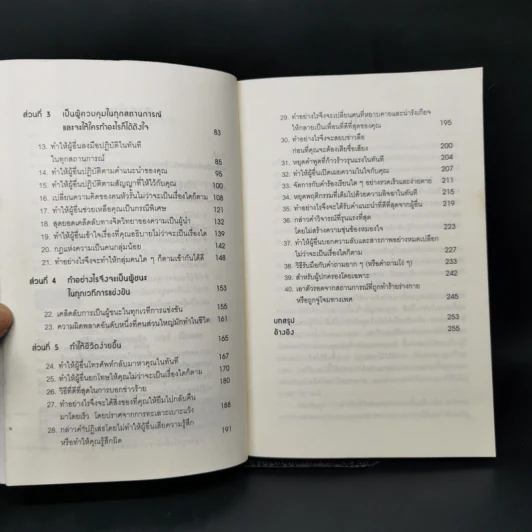 ส่วนที่ 3 เป็นผู้ควบคุมในทุกสถานการณ์
และจะให้ใครทำอะไรก็ได้ดังใจ 83
13. ทำให้ผู้อื่นลงมือปฏิบัติในทันที
ในทุกสถานการณ์ 85
14. ทำให้ผู้อื่นปฏิบัติตามคำแนะนำของคุณ 95
15. ทำให้ผู้อื่นปฏิบัติตามสัญญาที่ให้ไว้กับคุณ 100
16. เปลี่ยนความคิดของคนหัวรั้นไม่ว่าจะเป็นเรื่องใดก็ตาม 108
17. ทำให้ผู้อื่นช่วยเหลือคุณเป็นกรณีพิเศษ 121
18. สุดยอดเคล็ดลับทางจิตวิทยาของความเป็นผู้นำ 127
19. ทำให้ผู้อื่นเข้าใจเรื่องที่คุณอธิบายไม่ว่าจะเป็นเรื่องใด 139
20. กฎแห่งความเป็นคนกลุ่มน้อย 142
21. ทำอย่างไรจึงจะทำให้กลุ่มคนใด ๆ ก็ตามเข้ากันได้ดี 148
ส่วนที่ 4 ทำอย่างไรจึงจะเป็นผู้ชนะ
ในทุกเวทีการแข่งขัน 153
22. เคล็ดลับการเป็นผู้ชนะในทุกเวทีการแข่งขัน 155
23. ความผิดพลาดอันดับหนึ่งที่คนส่วนใหญ่มักทำในชีวิต 161
ส่วนที่ 5 ทำให้ชีวิตง่ายขึ้น 165
24. ทำให้ผู้อื่นโทรศัพท์กลับมาหาคุณในทันที 167
25. ทำให้ผู้อื่นยกโทษให้คุณไม่ว่าจะเป็นเรื่องใดก็ตาม 170
26. วิธีที่ดีที่สุดในการบอกข่าวร้าย 180
27. ทำอย่างไรจึงจะได้สิ่งของที่คุณให้ยืมไปกลับคืน
มาโดยเร็ว โดยปราศจากการทะเลาะเบาะแว้ง 188
28. กล่าวคำปฏิเสธโดยไม่ทำให้ผู้อื่นเสียความรู้สึก
หรือทำให้คุณรู้สึกผิด 191
29. ทำอย่างไรจึงจะเปลี่ยนคนที่หยาบคายและน่ารังเกียจ
ให้กลายเป็นเพื่อนที่ดีที่สุดของคุณ 195
30. ทำอย่างไรจึงจะสยบข่าวลือ
ก่อนที่คุณจะต้องเสียชื่อเสียง 200
31. หยุดคำพูดที่ก้าวร้าวรุนแรงในทันที 204
32. ทำให้ผู้อื่นเปิดเผยความในใจกับคุณ 207
33. จัดการกับคำร้องเรียนใด ๆ อย่างรวดเร็วและง่ายดาย 211
34. หยุดพฤติกรรมที่เต็มไปด้วยความอิจฉาในทันที 215
35. ทำอย่างไรจึงจะได้รับคำแนะนำที่ดีที่สุดจากผู้อื่น 219
36. กล่าวคำวิจารณ์ที่รุนแรงที่สุด
โดยไม่สร้างความขุ่นข้องหมองใจ 223
37. ทำให้ผู้อื่นบอกความลับและสารภาพอย่างหมดเปลือก
ไม่ว่าเรื่องใดก็ตาม 227
38. วิธีรับมือกับคำถามยาก ๆ (หรือคำถามโง่ ๆ) 232
39. สำหรับผู้ปกครองโดยเฉพาะ 237
40. เอาตัวรอดจากสถานการณ์ที่ถูกทำร้ายร่างกาย
หรือถูกจู่โจมทางเพศ 245
บทสรุป 253
อ้างอิง 255